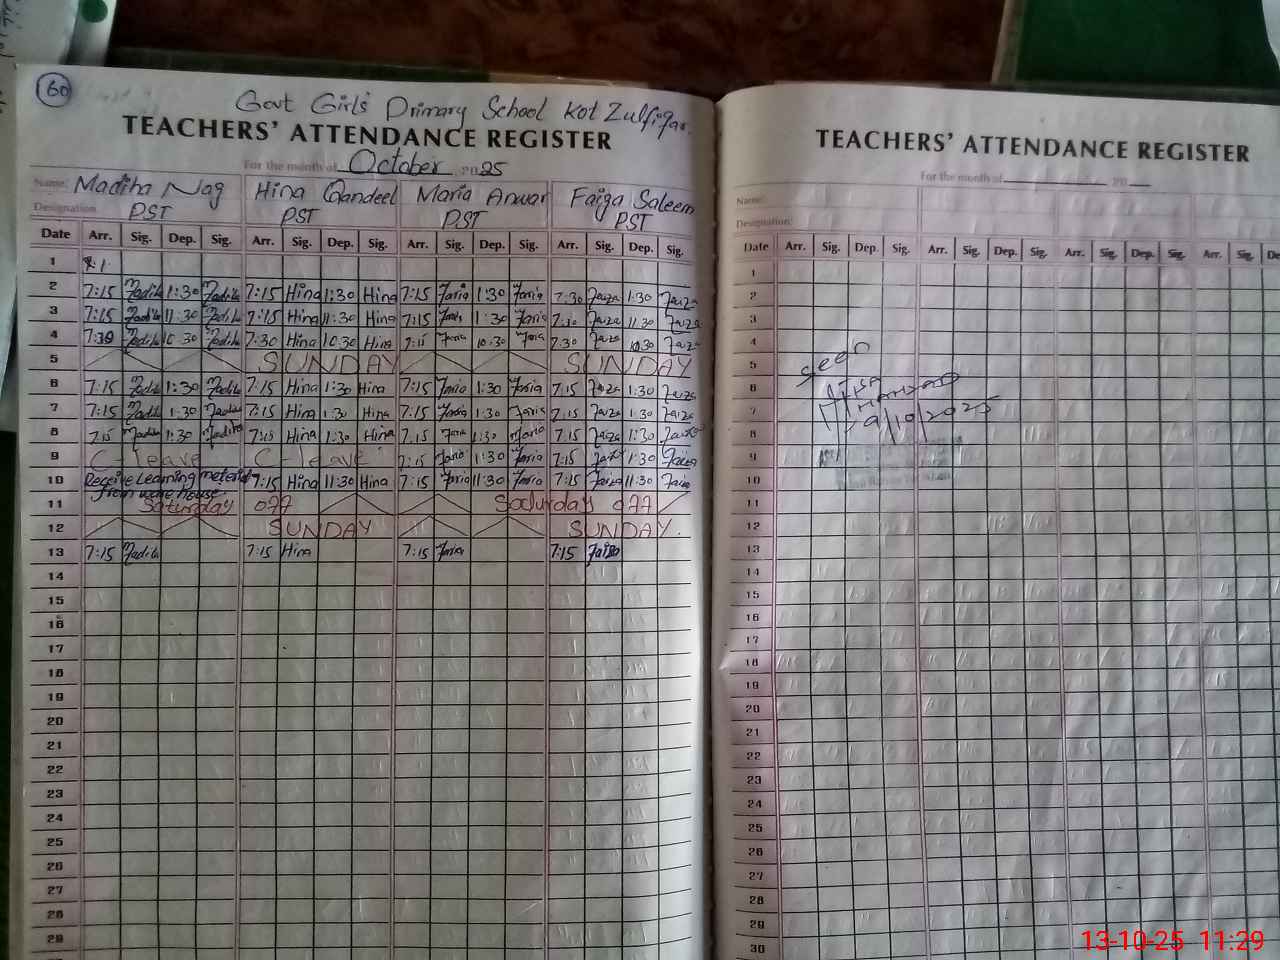 60
Govt Girls Primary School Kot Zulfiqar.
TEACHERS' ATTENDANCE REGISTER
For the month of October 2025
Name: Madiha Nag Hina Qandeel Maria Anwar Faiza Saleem
Designation PST PST PST PST
Date Arr. Sig. Dep. Sig. Arr. Sig. Dep. Sig. Arr. Sig. Dep. Sig. Arr. Sig. Dep. Sig.
1
2 7:15 Madiha 1:30 Madiha 7:15 Hina 1:30 Hina 7:15 Maria 1:30 Maria 7:30 Faiza 1:30 Faiza
3 7:15 Madiha 11:30 Madiha 7:15 Hina 11:30 Hina 7:15 Maria 11:30 Maria 7:30 Faiza 11:30 Faiza
4 7:30 Madiha 10:30 Madiha 7:30 Hina 10:30 Hina 7:15 Maria 10:30 Maria 7:30 Faiza 10:30 Faiza
5 SUNDAY SUNDAY
6 7:15 Madiha 1:30 Madiha 7:15 Hina 1:30 Hina 7:15 Maria 1:30 Maria 7:15 Faiza 1:30 Faiza
7 7:15 Madiha 1:30 Madiha 7:15 Hina 1:30 Hina 7:15 Maria 1:30 Maria 7:15 Faiza 1:30 Faiza
8 7:15 Madiha 1:30 Madiha 7:15 Hina 1:30 Hina 7:15 Maria 1:30 Maria 7:15 Faiza 1:30 Faiza
9 C-leave C-leave 7:15 Maria 1:30 Maria 7:15 Faiza 1:30 Faiza
10 Receive Learning meterial 7:15 Hina 11:30 Hina 7:15 Maria 11:30 Maria 7:15 Faiza 11:30 Faiza
from ware house.
11 Saturday off Saturday off
12 SUNDAY SUNDAY.
13 7:15 Madiha 7:15 Hina 7:15 Maria 7:15 Faiza
14
15
16
17
18
19
20
21
22
23
24
25
26
27
28
29
TEACHERS' ATTENDANCE REGISTER
For the month of 20
Name:
Designation:
Date Arr. Sig. Dep. Sig. Arr. Sig. Dep. Sig. Arr. Sig. Dep. Sig. Arr. Sig. De
1
2
3
4
5 seen
6
7 9/10/2025
8
9
10
11
12
13
14
15
16
17
18
19
20
21
22
23
24
25
26
27
28
29
30
13-10-25 11:29